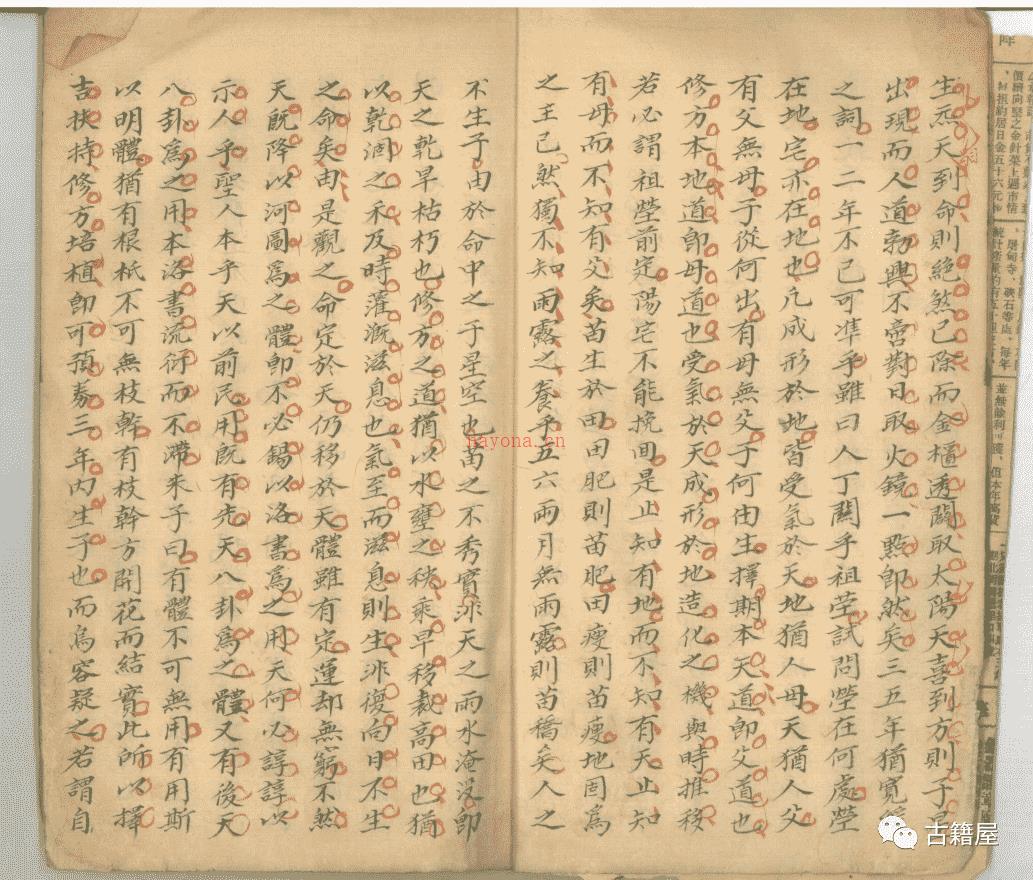 生炁天到命則絕煞已除而金櫃透闢取太陽天喜到方則子星
出現而人道勃興不啻對日取火鏡一點即然矣三五年猶寬
之詞一二年不已可準乎雖曰人丁關乎祖塋試問塋在何處塋
在地宅亦在地也凡成形於地皆受氣於天地猶人母天猶人父
有父無母子從何出有母無父子何由生擇期本天道即父道也
修方本地道即母道也受氣於天成形於地造化之機與時推移
若必謂祖塋前定陽宅不能挽回是止知有地而不知有天止知
有母而不知有父矣苗生於田田肥則苗肥田瘦則苗瘦地固為
之主已然獨不知雨露之養乎五六兩月無雨露則苗槁矣人之
不生子由於命中之子星空也苗之不秀實非天之雨水淹沒即
天之乾旱枯朽也修方之道猶以水壅之秧乘早移栽高田也猶
以乾涸之禾及時灌漑滋息也氣至而滋息則生非復向日不生
之命矣由是觀之命定於天仍移於天體雖有定運却無窮不然
天既降以河圖為之體即不必錫以洛書為之用天何必諄諄以
示人乎聖人本乎天以前民用既有先天八卦為之體又有後天
八卦為之用本洛書流衍而不滯朱子曰有體不可無用有用斯
以明體猶有根柢不可無枝幹有枝幹方開花而結實此所以擇
吉扶持修方培植即可預券三年內生子也而烏容疑之若謂自
nayona.cn
古籍屋